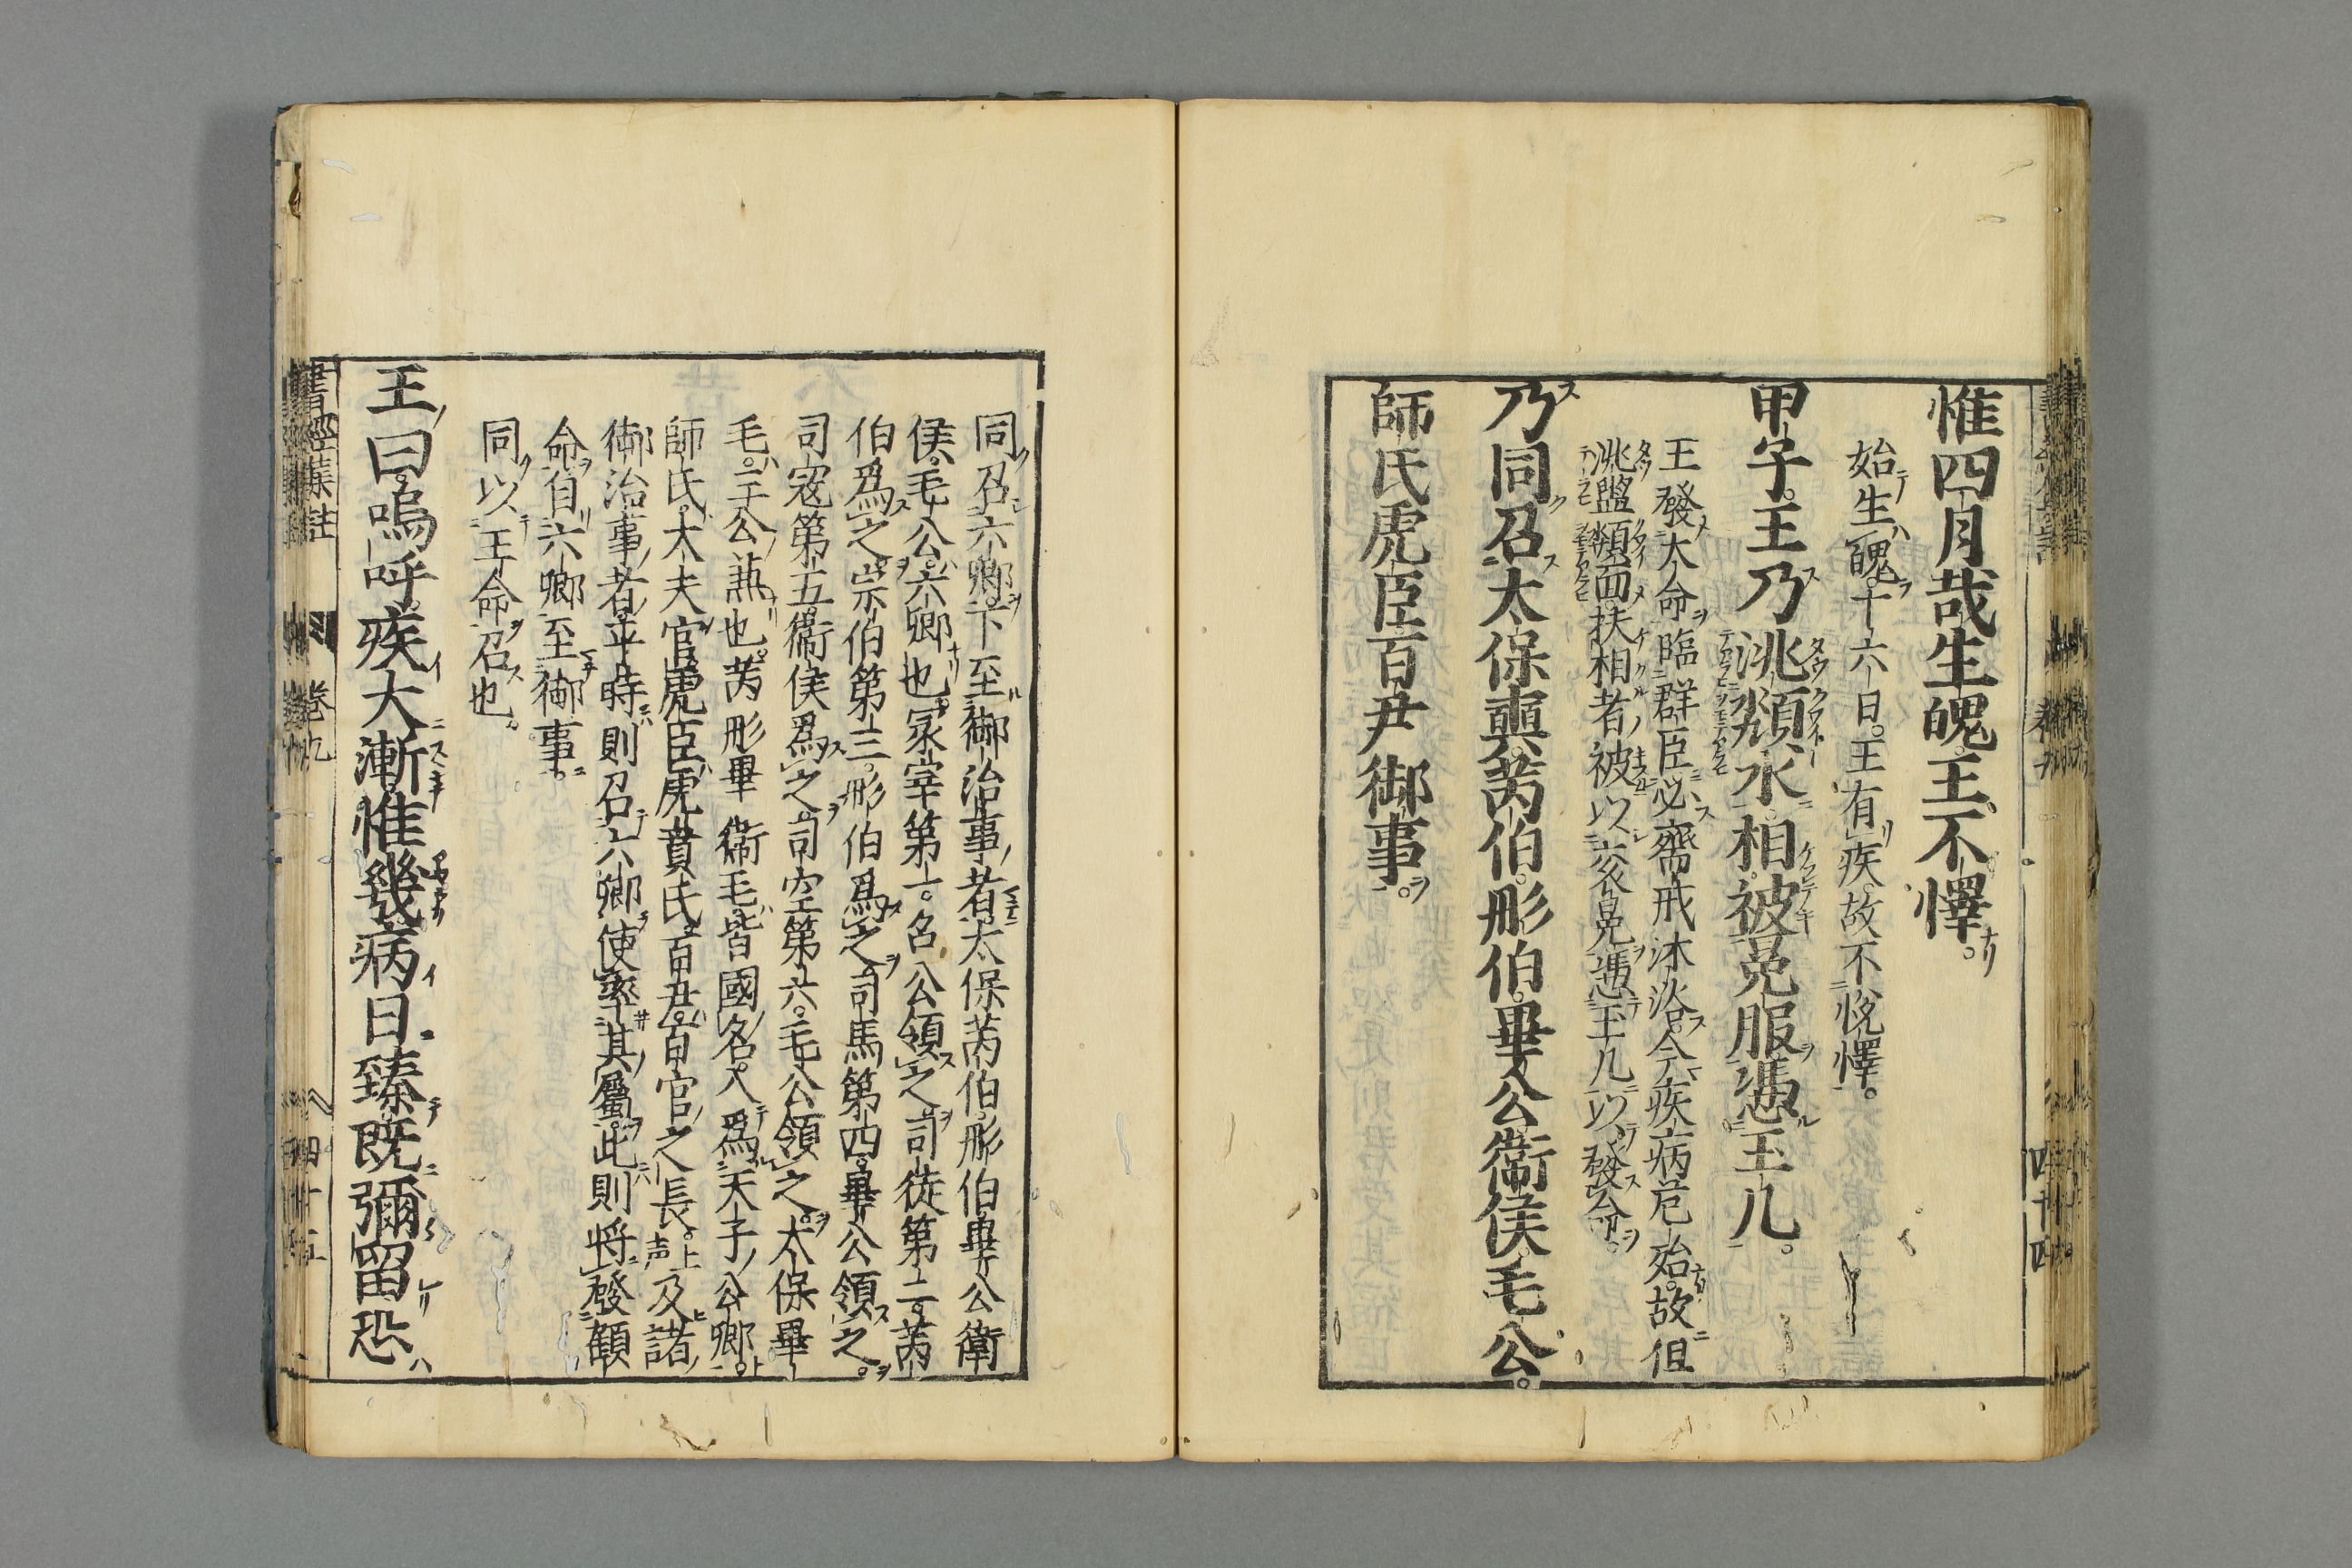 惟四月哉生魄王不懌。
始生魄。十六日。王有疾。故不悅懌。
甲子。王乃洮頮水。相被冕服。憑玉几。
王發大命。臨群臣。必齋戒沐浴。今疾病危殆。故但
洮盥頮面。扶相者。被以袞冕。憑玉几。以發命。
乃同召太保奭。芮伯。彤伯。畢公。衞侯。毛公。
師氏虎臣百尹御事。
同召六卿。下至御治事者。太保芮伯彤伯畢公衛
侯。毛公。六卿也。冢宰第一。召公領之。司徒第二。芮
伯爲之。宗伯第三。彤伯爲之。司馬第四。畢公領之。
司寇第五。衞侯爲之。司空第六。毛公領之。太保畢
毛。三公兼也。芮彤畢衞毛。皆國名。入爲天子公卿。
師氏。大夫官。虎臣。虎賁氏。百尹。百官之長。上声及諸
御治事者。平時則召六卿。使率其屬。此則將發顧
命。自六卿至御事。
同以王命召也。
王曰。嗚呼。疾大漸惟幾。病日臻。既彌留。恐
書經集註 卷九 四十五